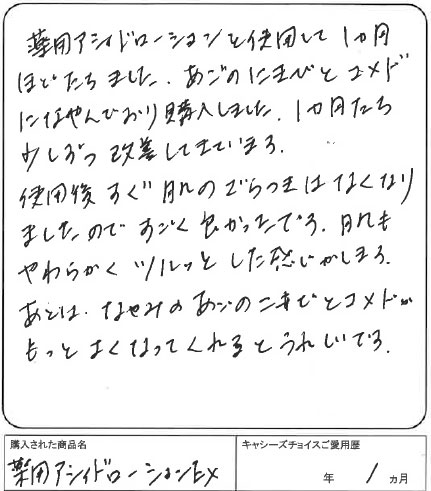 薬用アシィドローションを使用して1カ月
ほどたちました。あごのにきびとコメド
になやんでおり購入しました。1カ月たち
少しずつ改善してきています。
使用後すぐ肌のざらつきはなくなり
ましたのですごく良かったです。肌も
やわらかくツルっとした感じがします。
あとは、なやみのあごのニキビとコメドが
もっとよくなってくれるとうれしいです。
購入された商品名
薬用アシィドローションEX
キャシーズチョイスご愛用歴
年 1 カ月